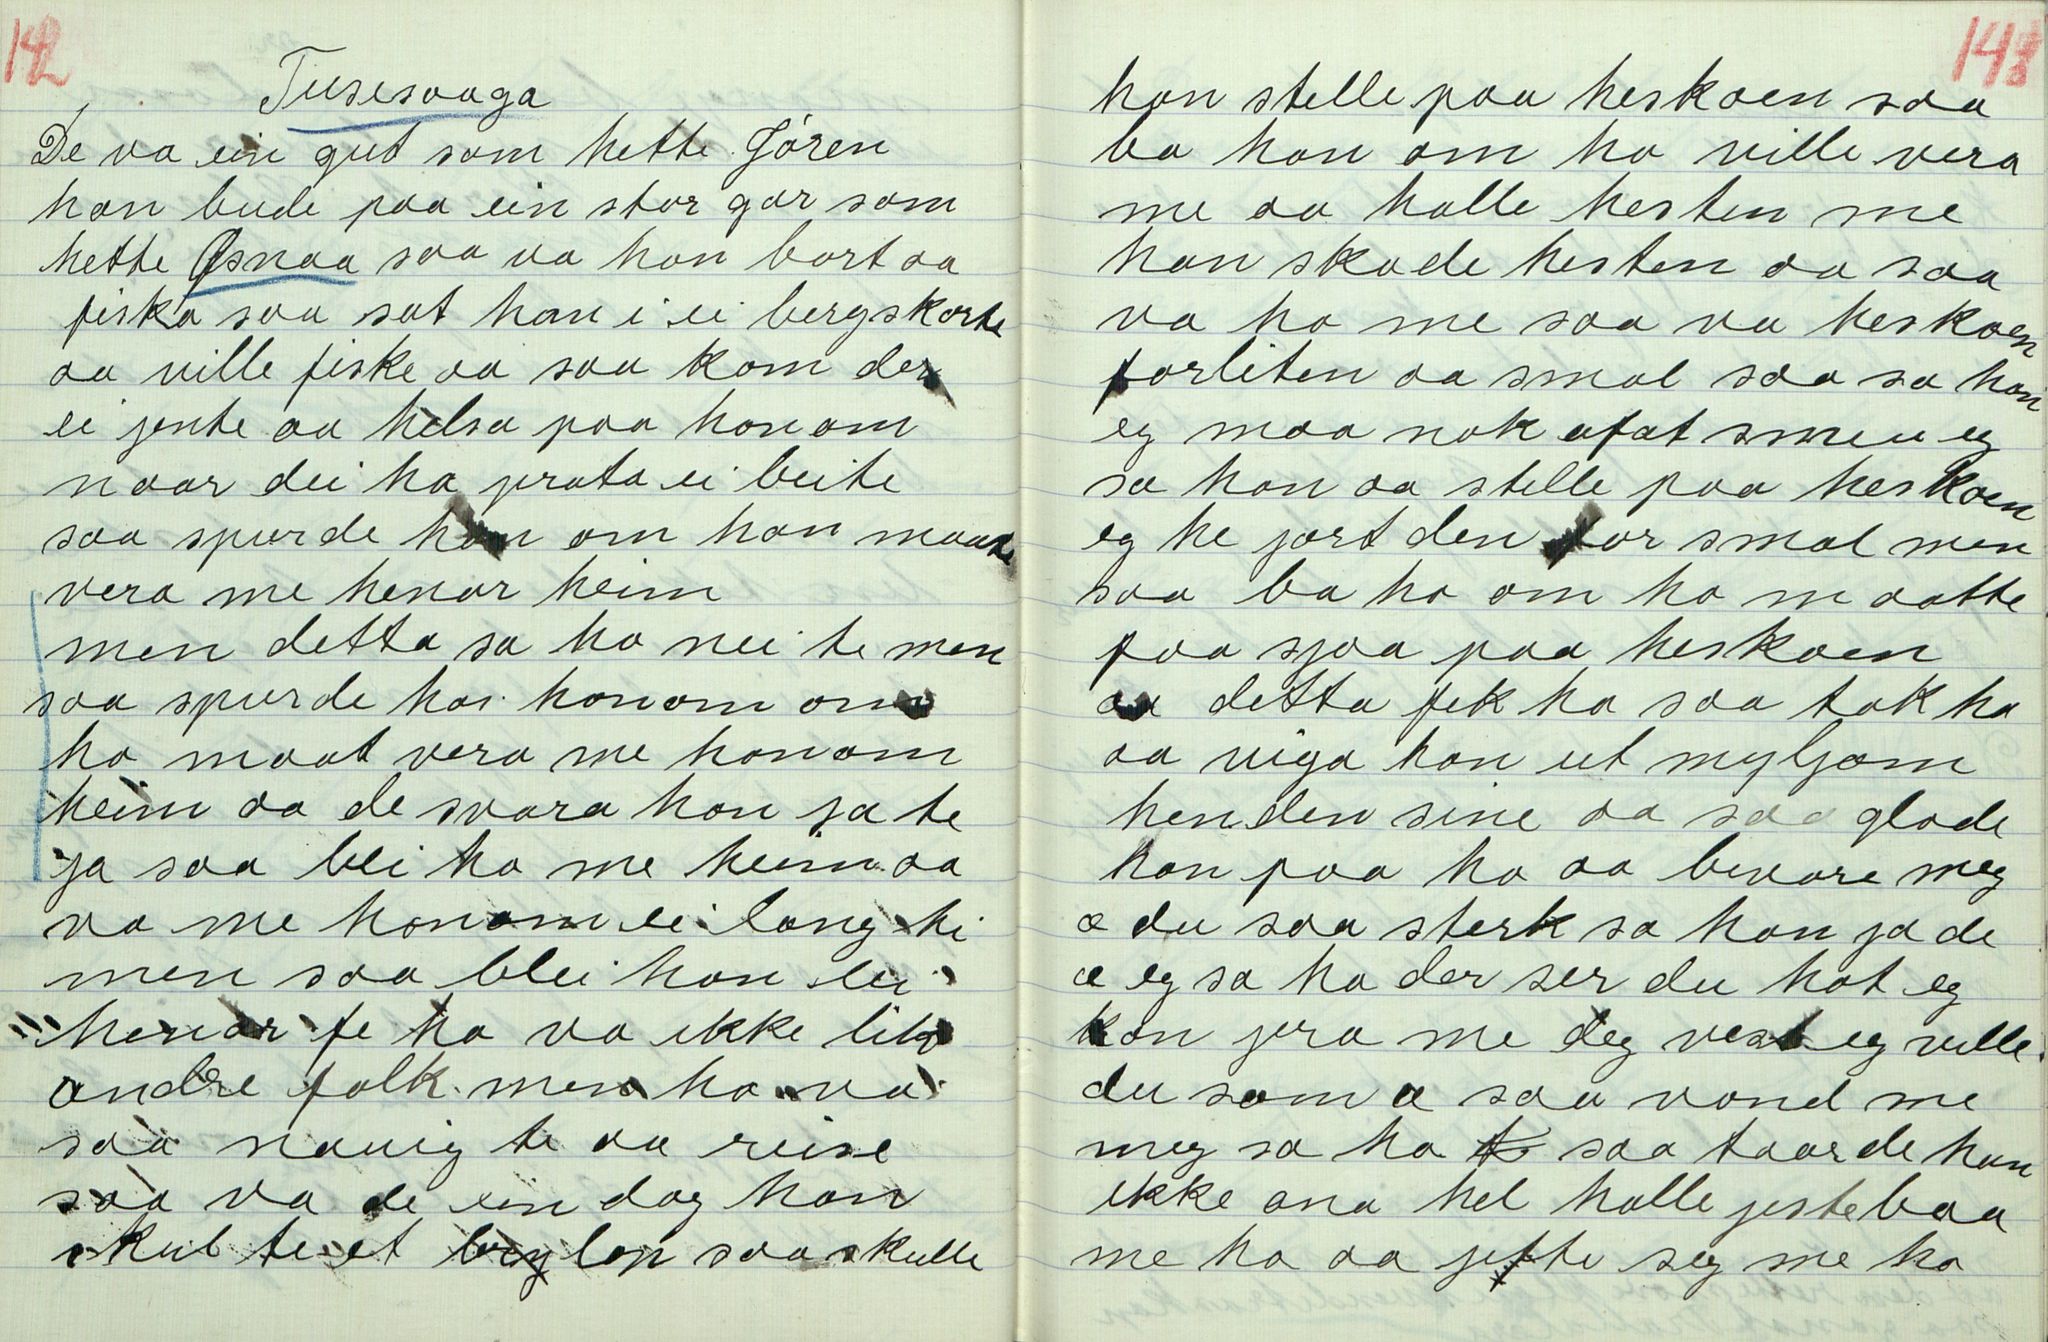 142
Tusesaaga
De va ein gut som hette Jören
han bude paa ein stor gar som
hette Osnaa saa va han bort aa
fiska saa sat han i ei bergskorte
aa ville fiske aa saa kom der
ei jente aa helsa paa honom
naar dei ha prata ei beite
saa spurde han om han maatte
vera me henar heim
men detta sa ho nei te men
saa spurde ho honom om
ho maat vera me honom
heim aa de svara han ja te
ja saa blei ho me heim aa
va me honom ei lang ti
men saa blei han lei
henar fe ho va ikke lik
andre folk men ho va
saa nauig te aa reise
saa va de ein dag han
skul te et brylop saa skulle
143
han stelle paa heskoen saa
ba han om ho ville vera
me aa halle hesten me
han skode hesten aa saa
va ho me saa va heskoen
forliten aa smal saa sa han
eg maa nok afat smeu eg
sa han aa stelle paa heskoen
eg he jort den for smal men
saa ba ho om ho maatte
faa sjaa paa heskoen
aa detta fek ho saa tok ho
aa viga han ut myljom
henden sine aa saa glode
han paa ho aa bevare meg
æ du saa sterk sa han ja de
æ eg sa ho der ser du hot eg
kan jera me deg vest eg ville
du som æ saa vond me
meg sa ho saa taarde han
ikke ana hel halle jestebaa
me ho aa jifte seg me ho